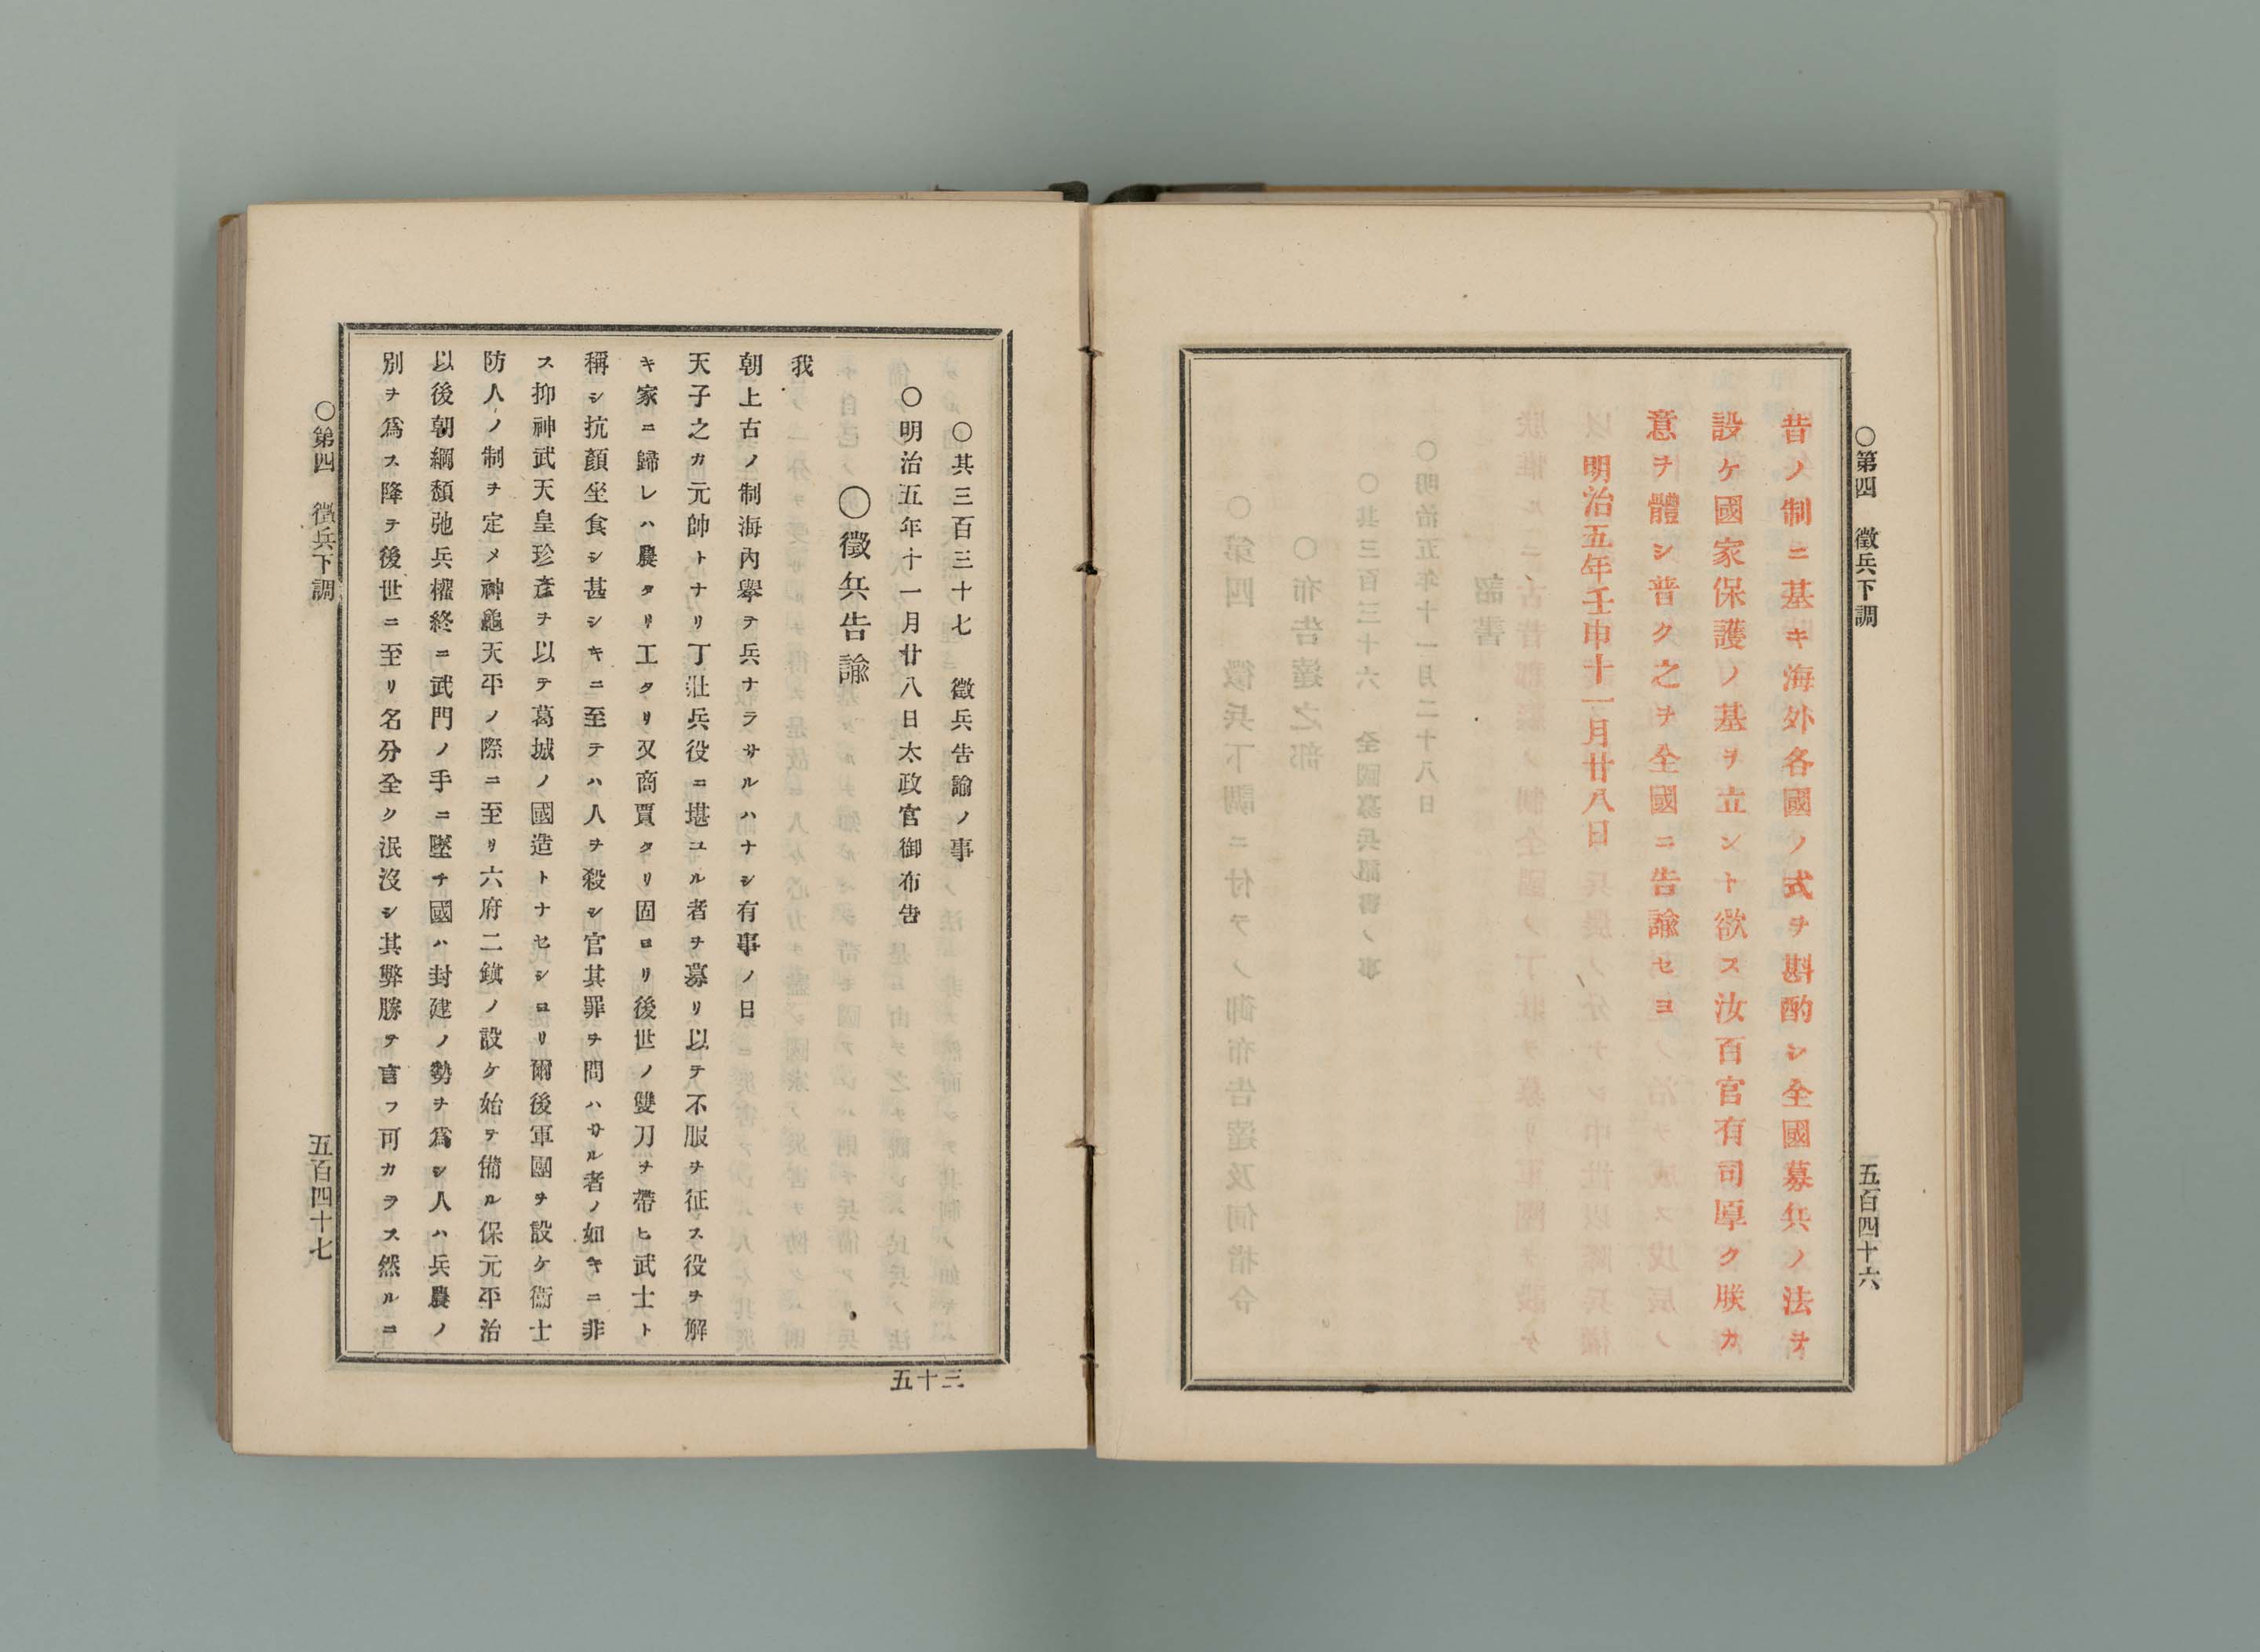 ○第四　徵兵下調
五百四十六
昔ノ制ニ基キ海外各國ノ式ヲ斟酌シ全國募兵ノ法ヲ
設ケ國家保護ノ基ヲ立ント欲ス汝百官有司厚ク朕カ
意ヲ體シ普ク之ヲ全國ニ告諭セヨ
明治五年壬申十一月廿八日
○其三百三十七　徵兵告諭ノ事
○明治五年十一月廿八日太政官御布告
○徵兵告諭
我
朝上古ノ制海內擧テ兵ナラサルハナシ有事ノ日
天子之カ元帥トナリ丁壯兵役ニ堪ユル者ヲ募リ以テ不服ヲ征ス役ヲ解
キ家ニ歸レハ農タリ工タリ又商賈タリ固ヨリ後世ノ雙刀ヲ帶ヒ武士ト
稱シ抗顏坐食シ甚シキニ至テハ人ヲ殺シ官其罪ヲ問ハサル者ノ如キニ非
ス抑神武天皇珍彥ヲ以テ葛城ノ國造トナセシヨリ爾後軍團ヲ設ケ衞士
防人ノ制ヲ定メ神龜天平ノ際ニ至リ六府二鎭ノ設ケ始テ備ル保元平治
以後朝綱頹弛兵權終ニ武門ノ手ニ墜チ國ハ封建ノ勢ヲ爲シ人ハ兵農ノ
別ヲ爲ス降テ後世ニ至リ名分全ク泯沒シ其弊勝テ言フ可カラス然ルニ
○第四　徵兵下調
五百四十七
五十三